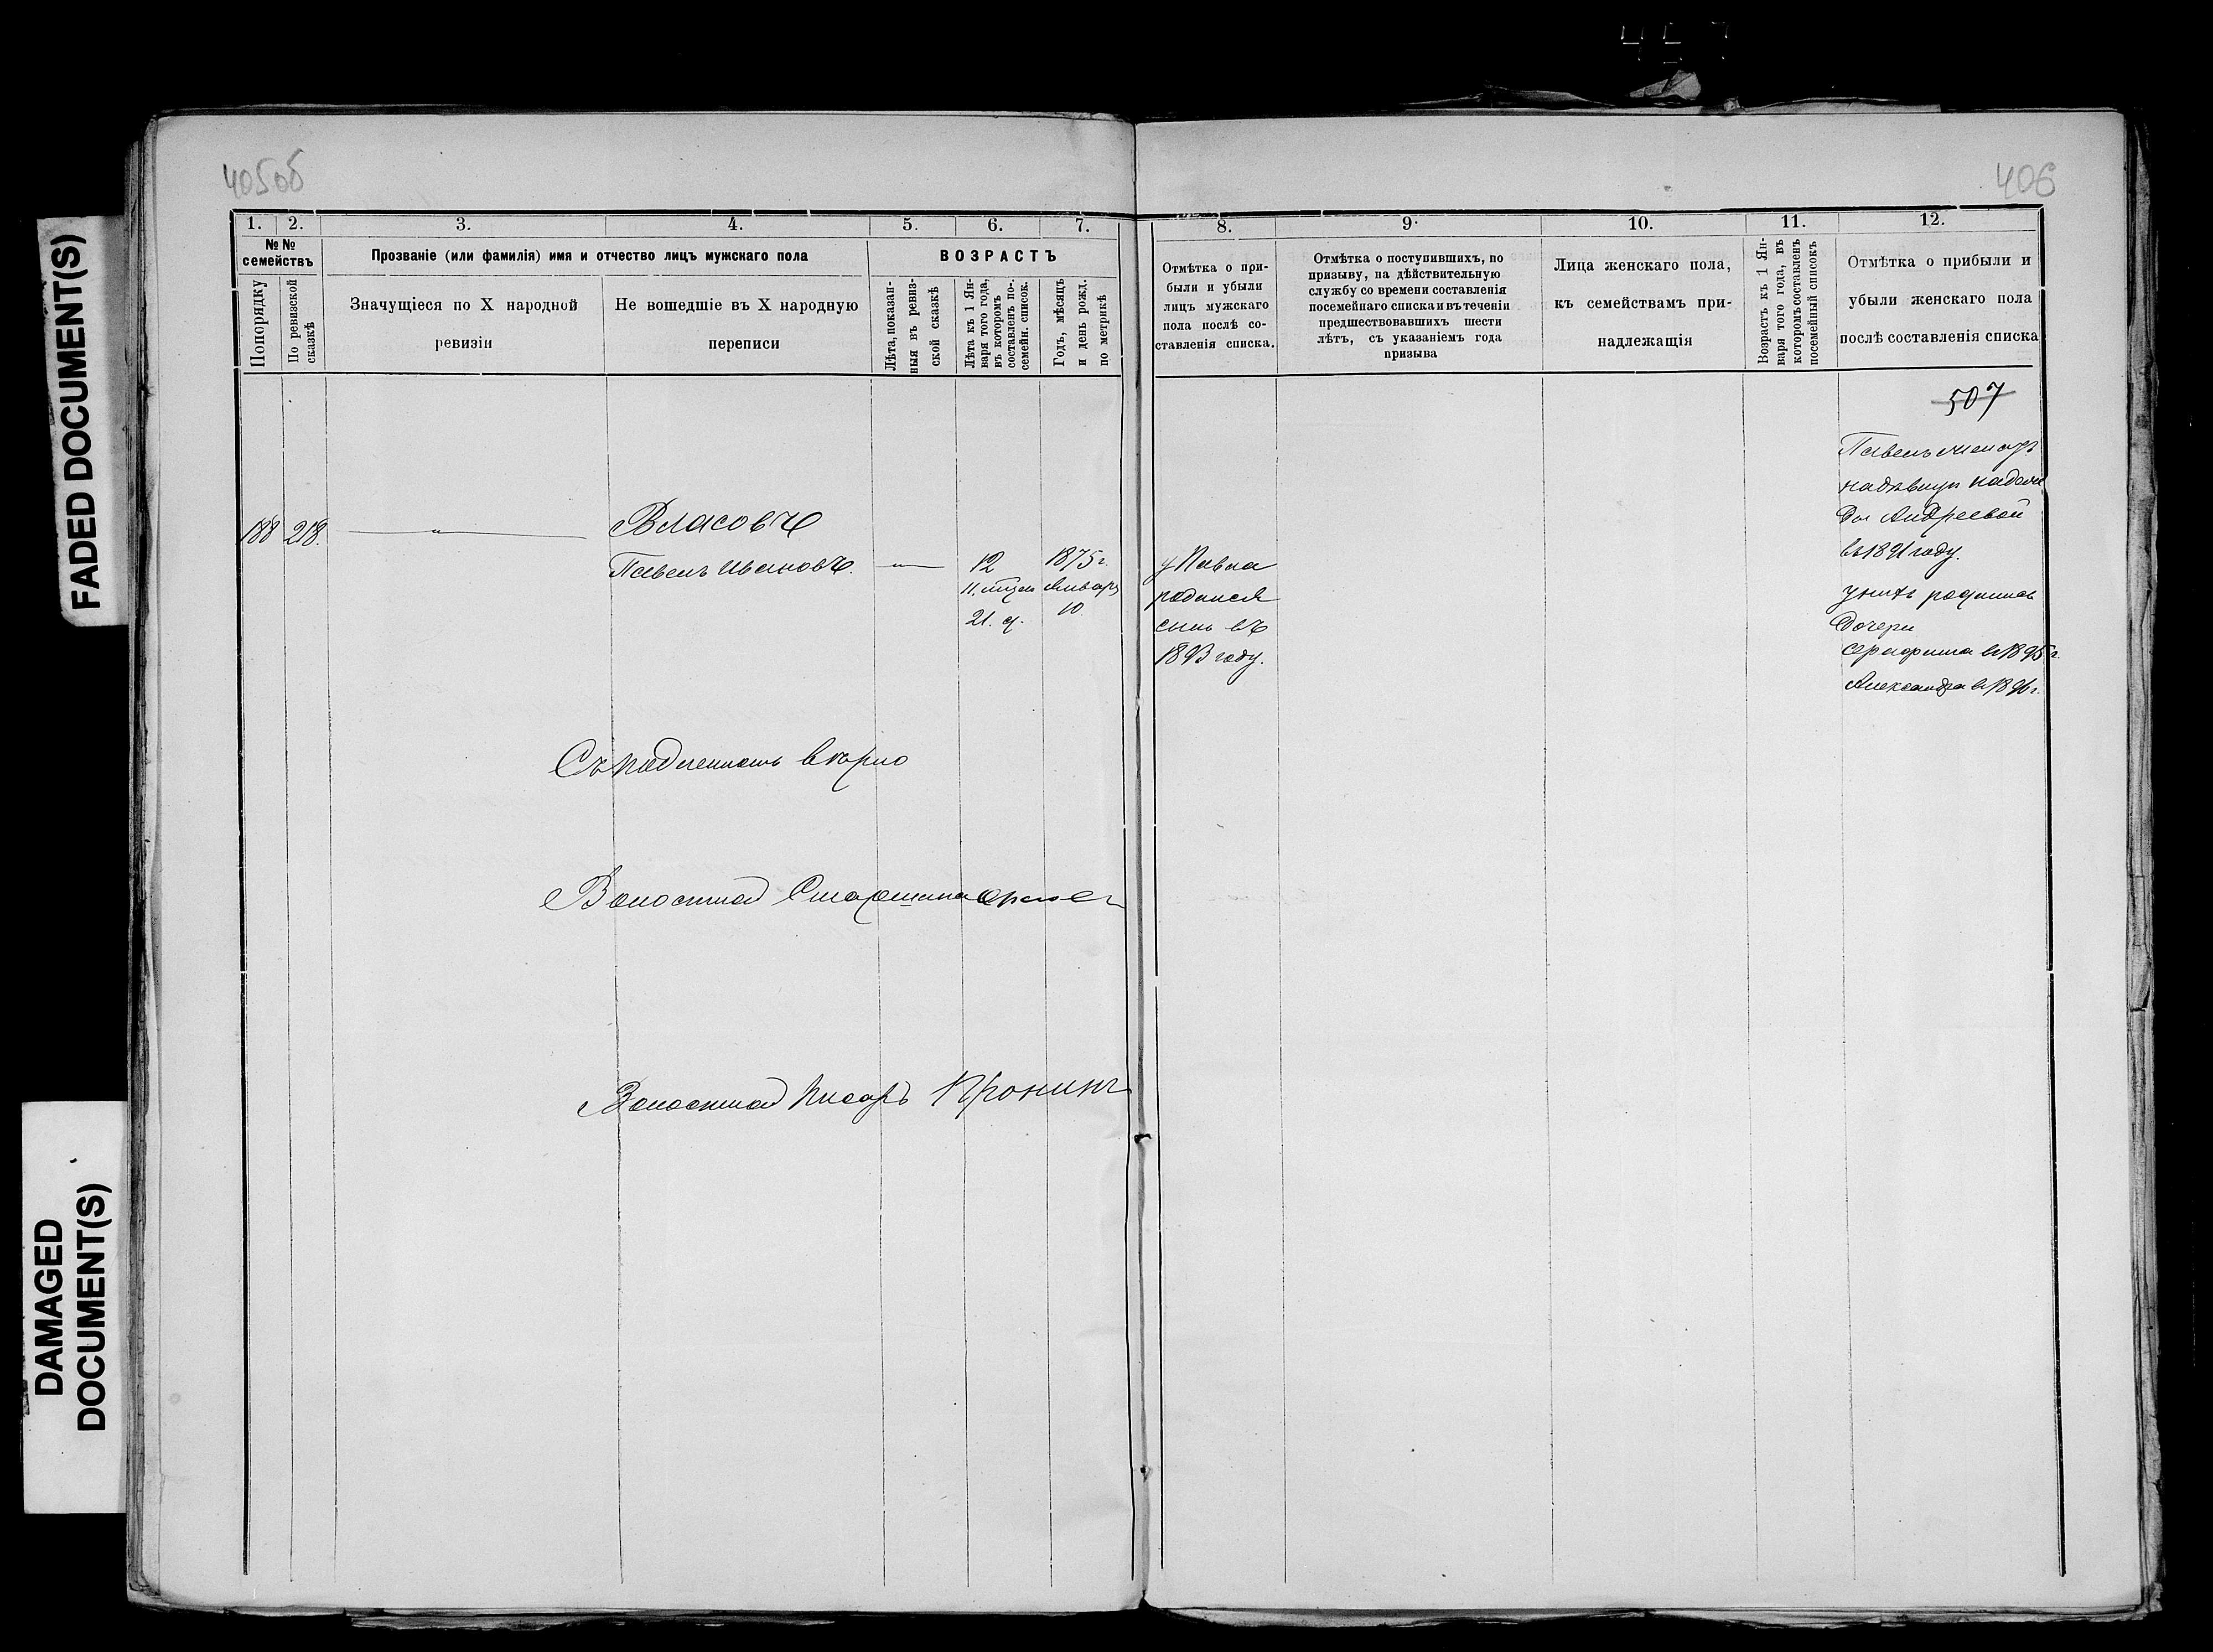 FADED DOCUMENT(S)
DAMAGED
DOCUMENT(S)
405об
406
1. 2. 3. 4. 5. 6. 7.
№ №
семействъ
Попорядку
По ревизской
сказкѣ
Прозваніе (или фамилія) имя и отчество лицъ мужскаго пола
Значущіеся по X народной
ревизіи
Не вошедшіе въ X народную
переписи
ВОЗРАСТЪ
Лѣта, показан-
ныя въ ревиз-
ской сказкѣ
Лѣта къ 1 Ян-
варя того года,
въ которомъ
составленъ по-
семейн. список.
Годъ, мѣсяцъ
и день рожд.
по метрикѣ
8. 9. 10. 11. 12.
Отмѣтка о при-
были и убыли
лицъ мужскаго
пола послѣ со-
ставленія списка.
Отмѣтка о поступившихъ, по
призыву, на дѣйствительную
службу со времени составленія
посемейнаго списка и въ теченіи
предшествовавшихъ шести
лѣтъ, съ указаніемъ года
призыва
Лица женскаго пола,
къ семействамъ при-
надлежащія
Возрастъ къ 1 Ян-
варя того года, въ
которомъ составленъ
посемейный списокъ
Отмѣтка о прибыли и
убыли женскаго пола
послѣ составленія списка
188 218. Власовъ
Павелъ Ивановъ. 12 1875 г.
11. мцев Января
21. д. 10
у Павла
родился
сынъ въ
1893 году.
507
Павелъ женатъ
на дѣвицѣ
Андреевой
въ 1891 году.
у нихъ родились
дочери
Серафима въ 1895 г.
Александра въ 1896 г.
Съ подлиннымъ вѣрно
Волостной Старшина
Волостной Писарь Пронинъ